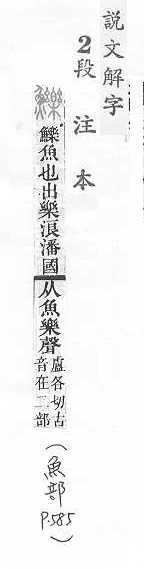 說文解字
2段注本
鱳 鱳魚也出樂浪潘國从魚樂聲盧各切古音在二部
(魚部 P.585)